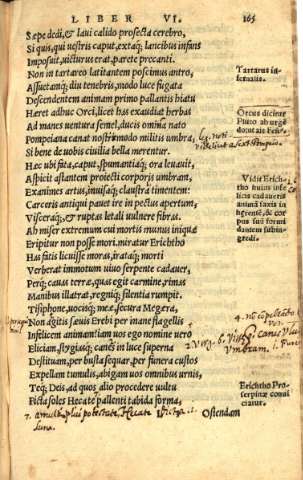 LIBER VI. 165
Sæpe dedi, & laui calido prosecta cerebro,
Si quis, qui uestris caput, extaq; lancibus infans
Imposuit, uicturus erat, parete precanti.
Non in tartareo latitantem poscimus antro,
Assuetamq; diu tenebris, modo luce fugata
Descendentem animam primo pallentis hiatu
Hæret adhuc Orci, licet has exaudiat herbas
Ad manes uentura semel, ducis omina nato
Pompeiana canat nostri modo militis umbra,
Si bene de uobis ciuilia bella merentur.
Hæc ubi fata, caput, spumantiaq; ora leuauit,
Aspicit astantem proiecti corporis umbram,
Exanimes artus, inuisaq; claustra timentem
Carceris antiqui pauet ire in pectus apertum,
Visceraq;, & ruptas letali uulnere fibras.
Ah miser extremum cui mortis munus iniquæ
Eripitur non posse mori, miratur Erichtho
Has fatis licuisse moras, irataq; morti
Verberat immotum uiuo serpente cadauer,
Perq; cauas terræ, quas egit carmine, rimas
Manibus illatrat, regniq; silentia rumpit.
Tisiphone, uocisq; meæ secura Megæra,
Non agitis sæuis Erebi per inane flagellis
Infelicem animam? iam uos ego nomine uero
Eliciam, stygiasq; canes in luce superna
Destituam, per busta sequar, per funera custos
Expellam tumulis, abigam uos omnibus urnis,
Teq; Deis, ad quos alio procedere uultu
Ficta soles Hecate pallenti tabida forma,
Ostendam
Tartarus in-
fernalis.
Orcus dicitur
Pluto ab urgē
do
Vidit Erichtho
huius infe
licis cadaueris
animā saxis in
& cor
pus suū formi
dantem subin-
gredi.
Erichtho Pro-
serpinæ conui
ciatur.
Hecate
luna.